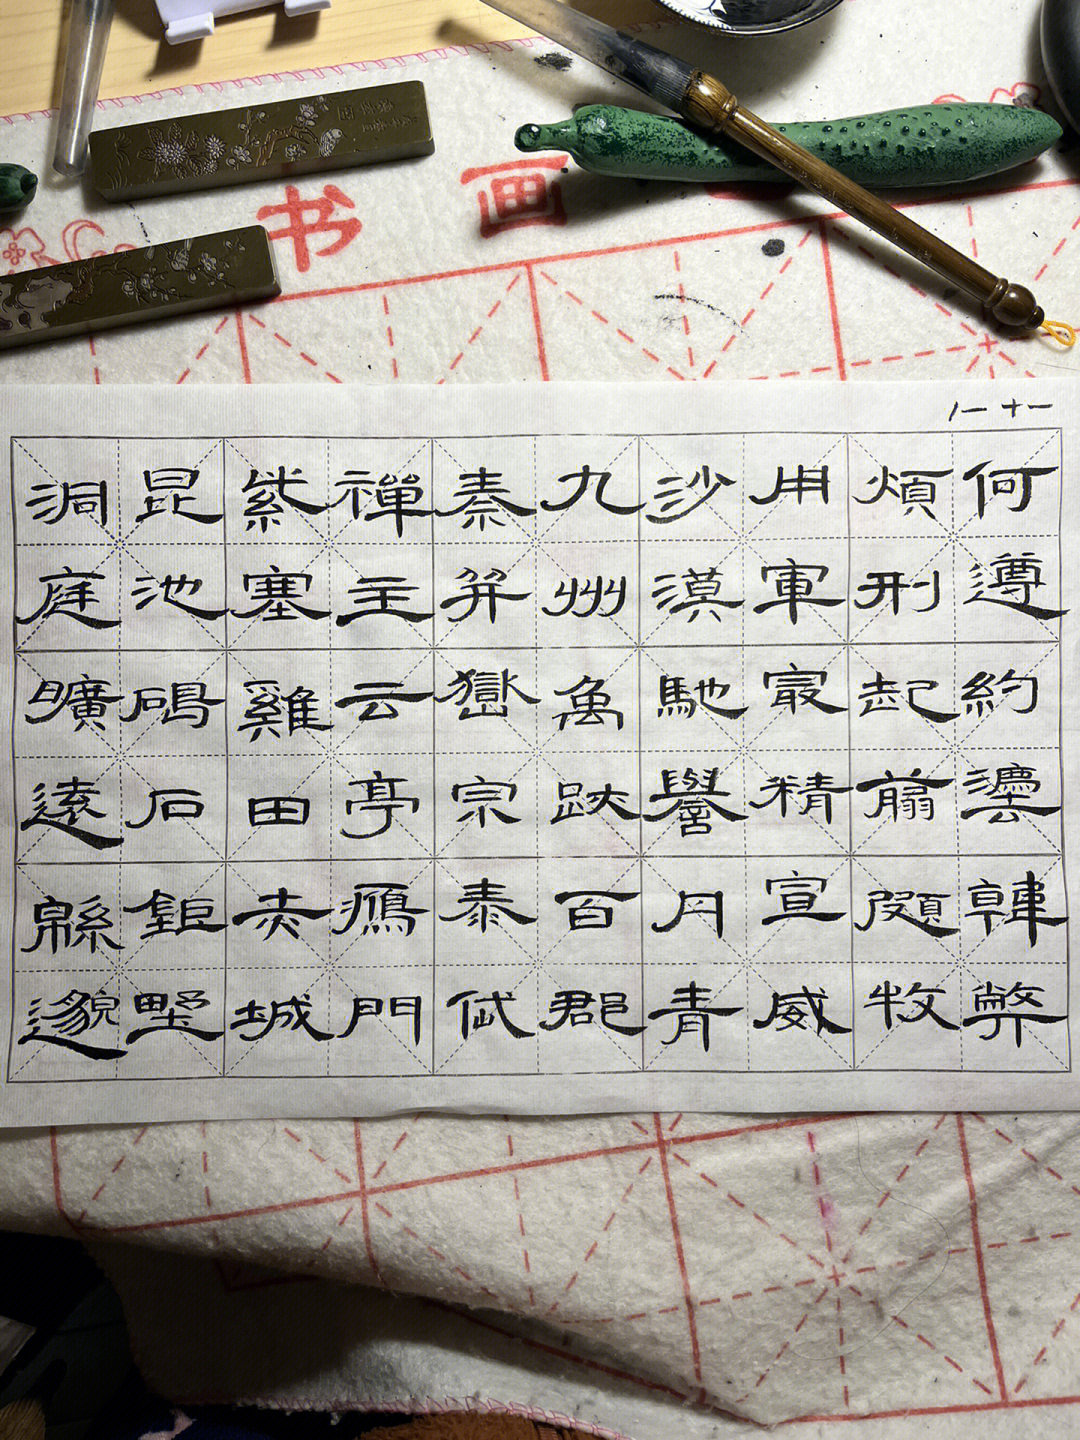 书画
何遵約灋韓弊
煩刑起翦頗牧
用軍最精宣威
沙漠馳譽丹青
九州禹跡百郡
秦并嶽宗泰岱
禪主云亭鴈門
紫塞雞田赤城
昆池碣石鉅野
洞庭曠遠緜邈